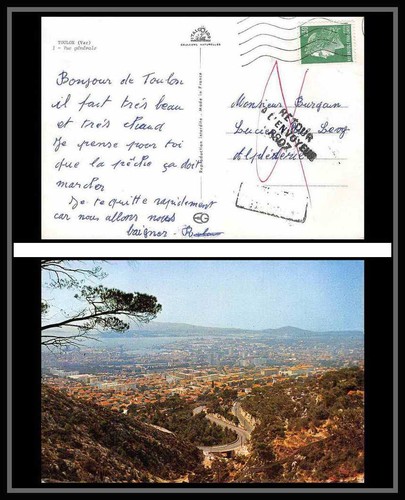 TOULON (Var)
2 - Vue générale
Bonjour de Toulon
il fait très beau
et très chaud
Je pense pour toi
que la pêche ça doit
marcher
Je te quitte rapidement
car nous allons nous
baigner -
Reproduction interdite - Made in France
Monsieur
Lucien
RETOUR
A L'ENVOYEUR